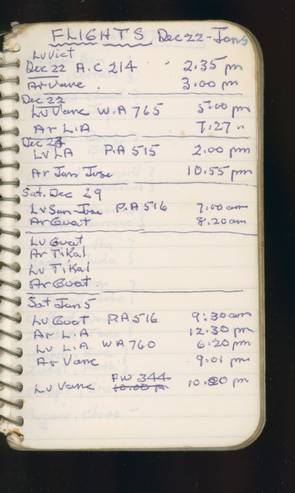 FLIGHTS Dec 22 - Jan 5
Lv Vict
Dec 22 A.C 214 2.35 pm
Ar Vanc 3.00 pm
Dec 22
Lv Vanc W.A 765 5.00 pm
Ar L.A 7.27 "
Dec 28
Lv LA P.A 515 2.00 pm
Ar San Jose 10.55 pm
Sat. Dec 29
Lv San Jose P.A 516 7.00 am
Ar Guat 8.20 am
Lv Guat
Ar Tikal
Lv Tikal
Ar Guat
Sat Jan 5
Lv Guat PA 516 9:30 am
Ar L.A 12.30 pm
Lv L.A WA 760 6.20 pm
Ar Vanc 9.01 pm
PW 344
Lv Vanc 10.00 pm